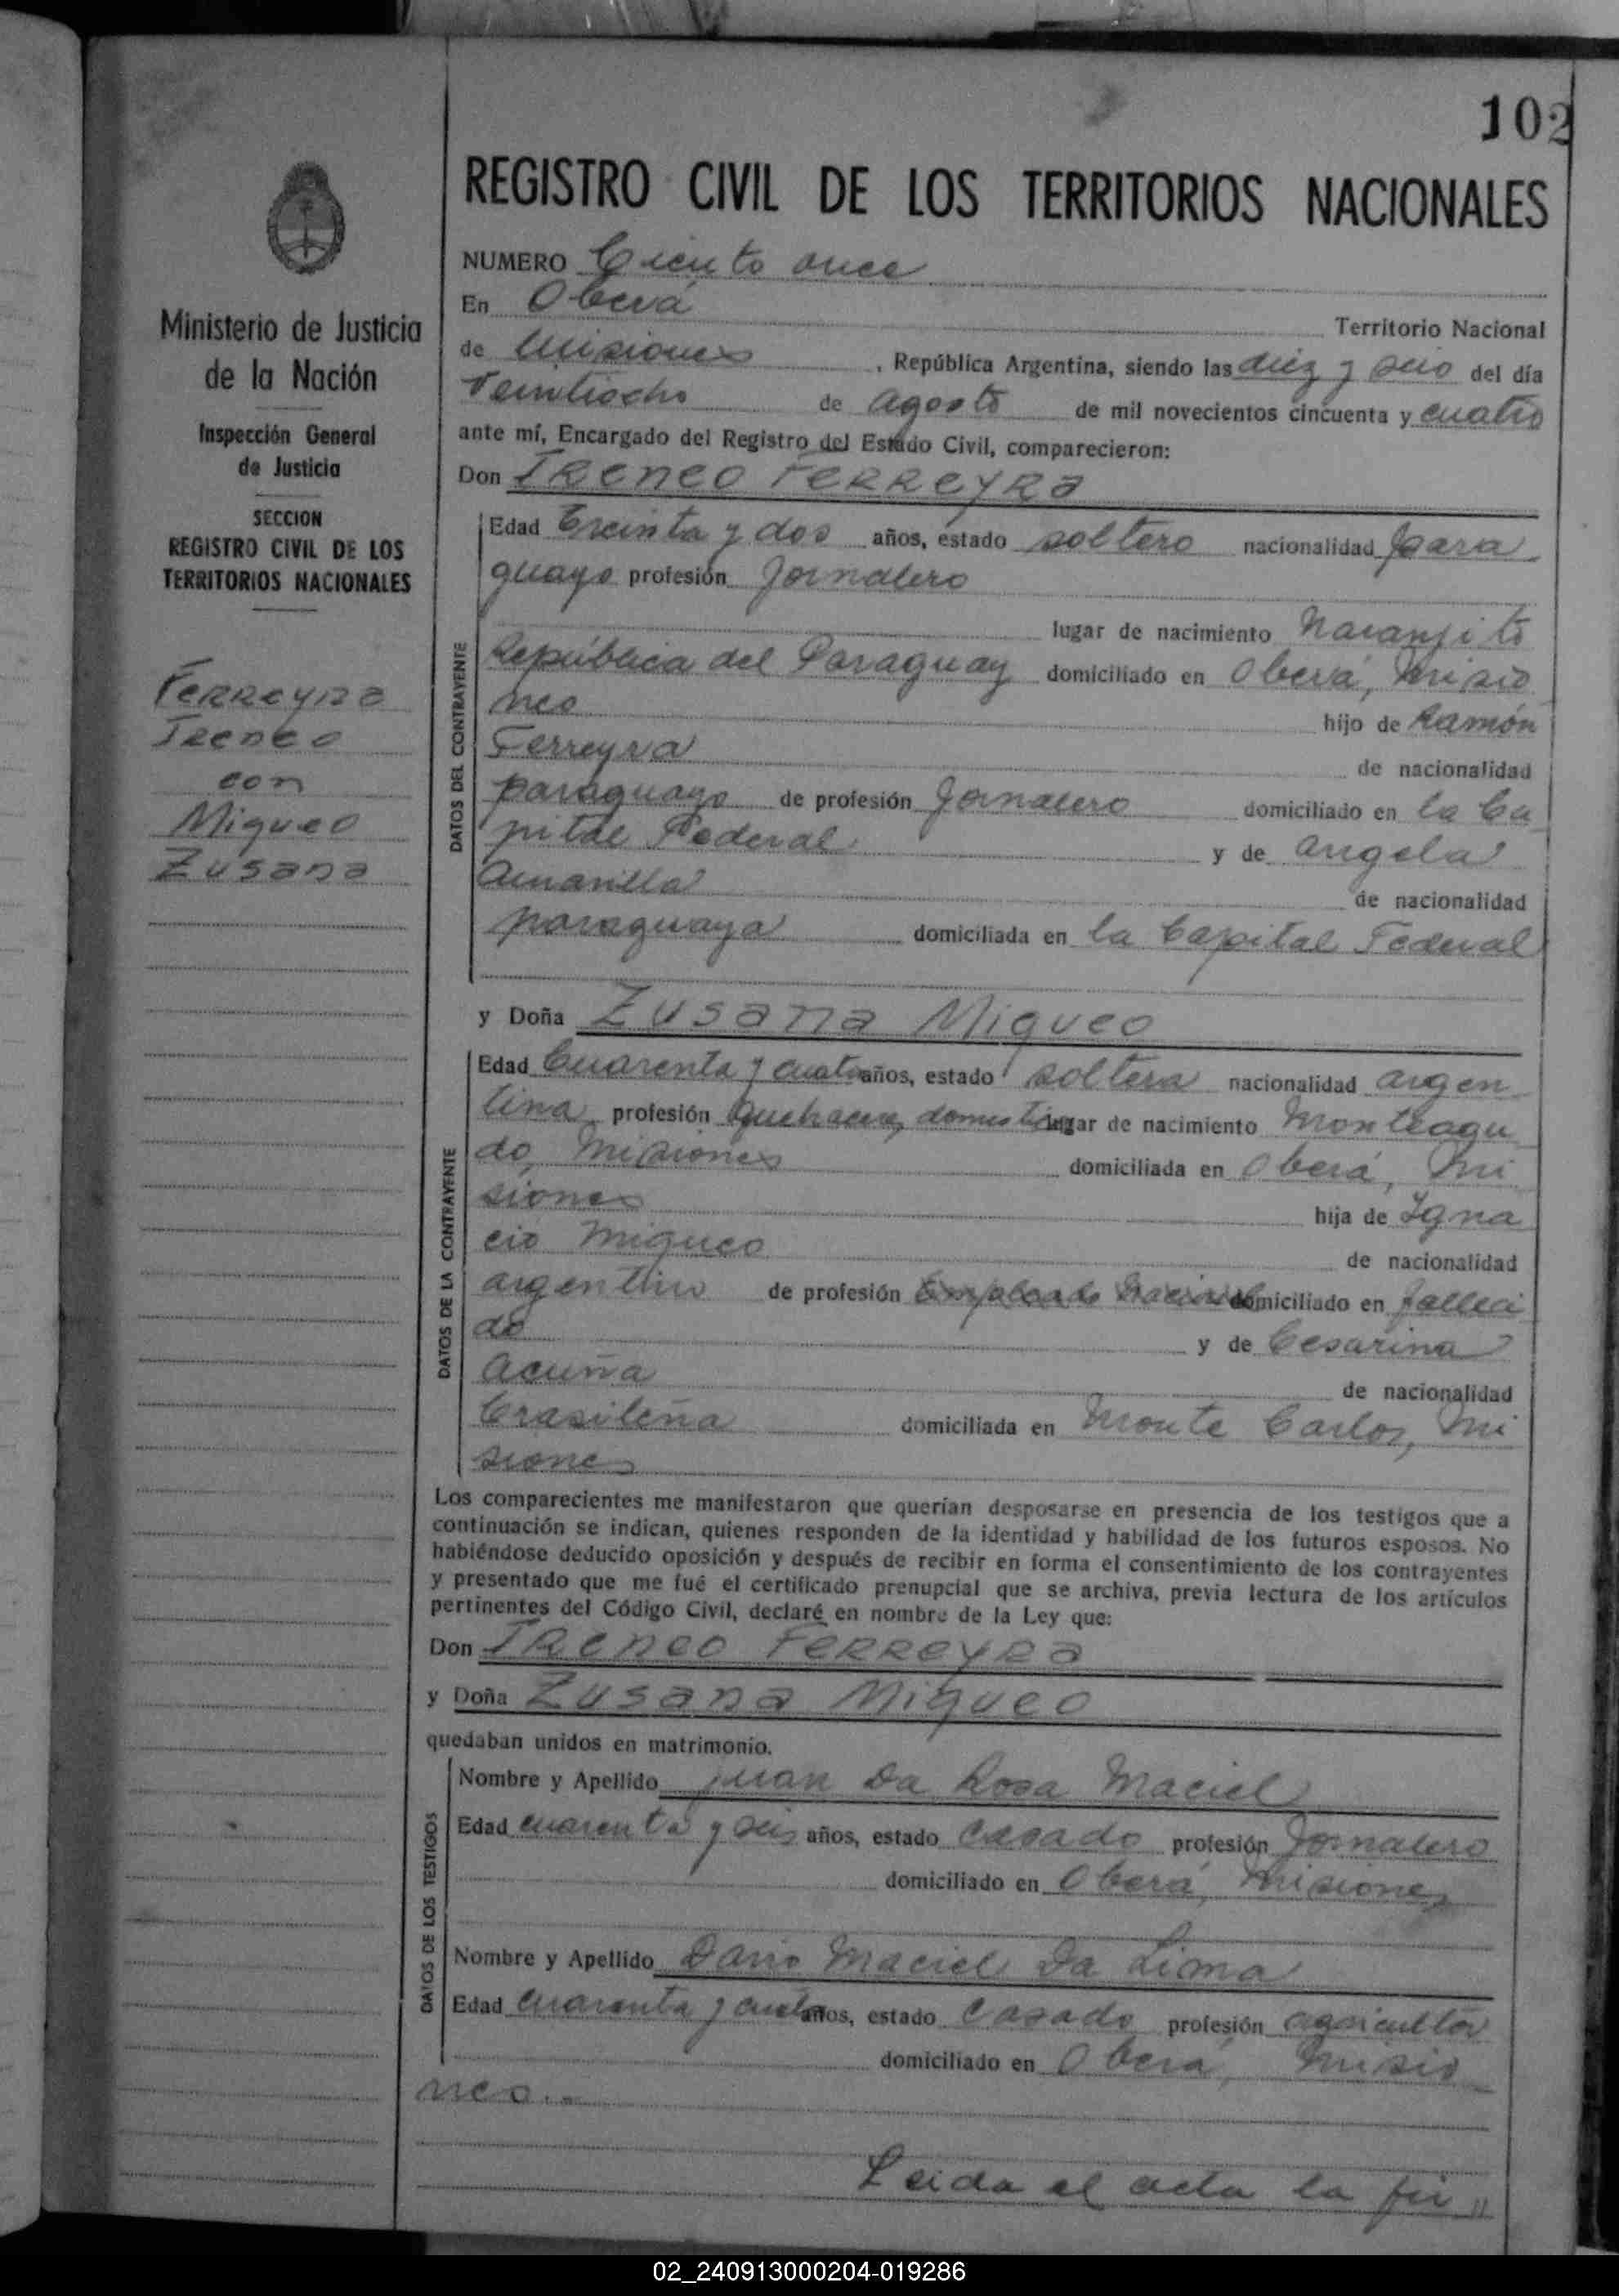 102
REGISTRO CIVIL DE LOS TERRITORIOS NACIONALES
Ministerio de Justicia
de la Nación
Inspección General
de Justicia
SECCION
REGISTRO CIVIL DE LOS
TERRITORIOS NACIONALES
Ferreyra
Ireneo
con
Miqueo
Zusana
NUMERO Ciento once
En Oberá Territorio Nacional
de Misiones, República Argentina, siendo las diez y seis del día
Veintiocho de agosto de mil novecientos cincuenta y cuatro
ante mí, Encargado del Registro del Estado Civil, comparecieron:
Don Ireneo Ferreyra
DATOS DEL CONTRAYENTE
Edad treinta y dos años, estado soltero nacionalidad para
guayo profesión Jornalero
lugar de nacimiento Naranjito
República del Paraguay domiciliado en Oberá, Misio
nes hijo de Ramón
Ferreyra de nacionalidad
paraguayo de profesión Jornalero domiciliado en la Ca
pital Federal y de Angela
Amarilla de nacionalidad
paraguaya domiciliada en la Capital Federal
y Doña Zusana Miqueo
DATOS DE LA CONTRAYENTE
Edad Cuarenta y cuatro años, estado soltera nacionalidad argen
tina profesión Quehaceres domestico lugar de nacimiento Monteagu
do, Misiones domiciliada en Oberá, Mi
siones hija de Igna
cio Miqueo de nacionalidad
argentino de profesión Empleado domiciliado en falleci
do y de Cesarina
Acuña de nacionalidad
brasileña domiciliada en Monte Carlos, Mi
siones
Los comparecientes me manifestaron que querían desposarse en presencia de los testigos que a
continuación se indican, quienes responden de la identidad y habilidad de los futuros esposos. No
habiéndose deducido oposición y después de recibir en forma el consentimiento de los contrayentes
y presentado que me fué el certificado prenupcial que se archiva, previa lectura de los artículos
pertinentes del Código Civil, declaré en nombre de la Ley que:
Don Ireneo Ferreyra
y Doña Zusana Miqueo
quedaban unidos en matrimonio.
DATOS DE LOS TESTIGOS
Nombre y Apellido Juan Da Rosa Maciel
Edad cuarenta y seis años, estado casado profesión Jornalero
domiciliado en Oberá, Misiones
Nombre y Apellido Dario Maciel Da Lima
Edad cuarenta y cuatro años, estado casado profesión agricultor
domiciliado en Oberá, Misio
nes..-
Leida el acta la fir"
02_240913000204-019286